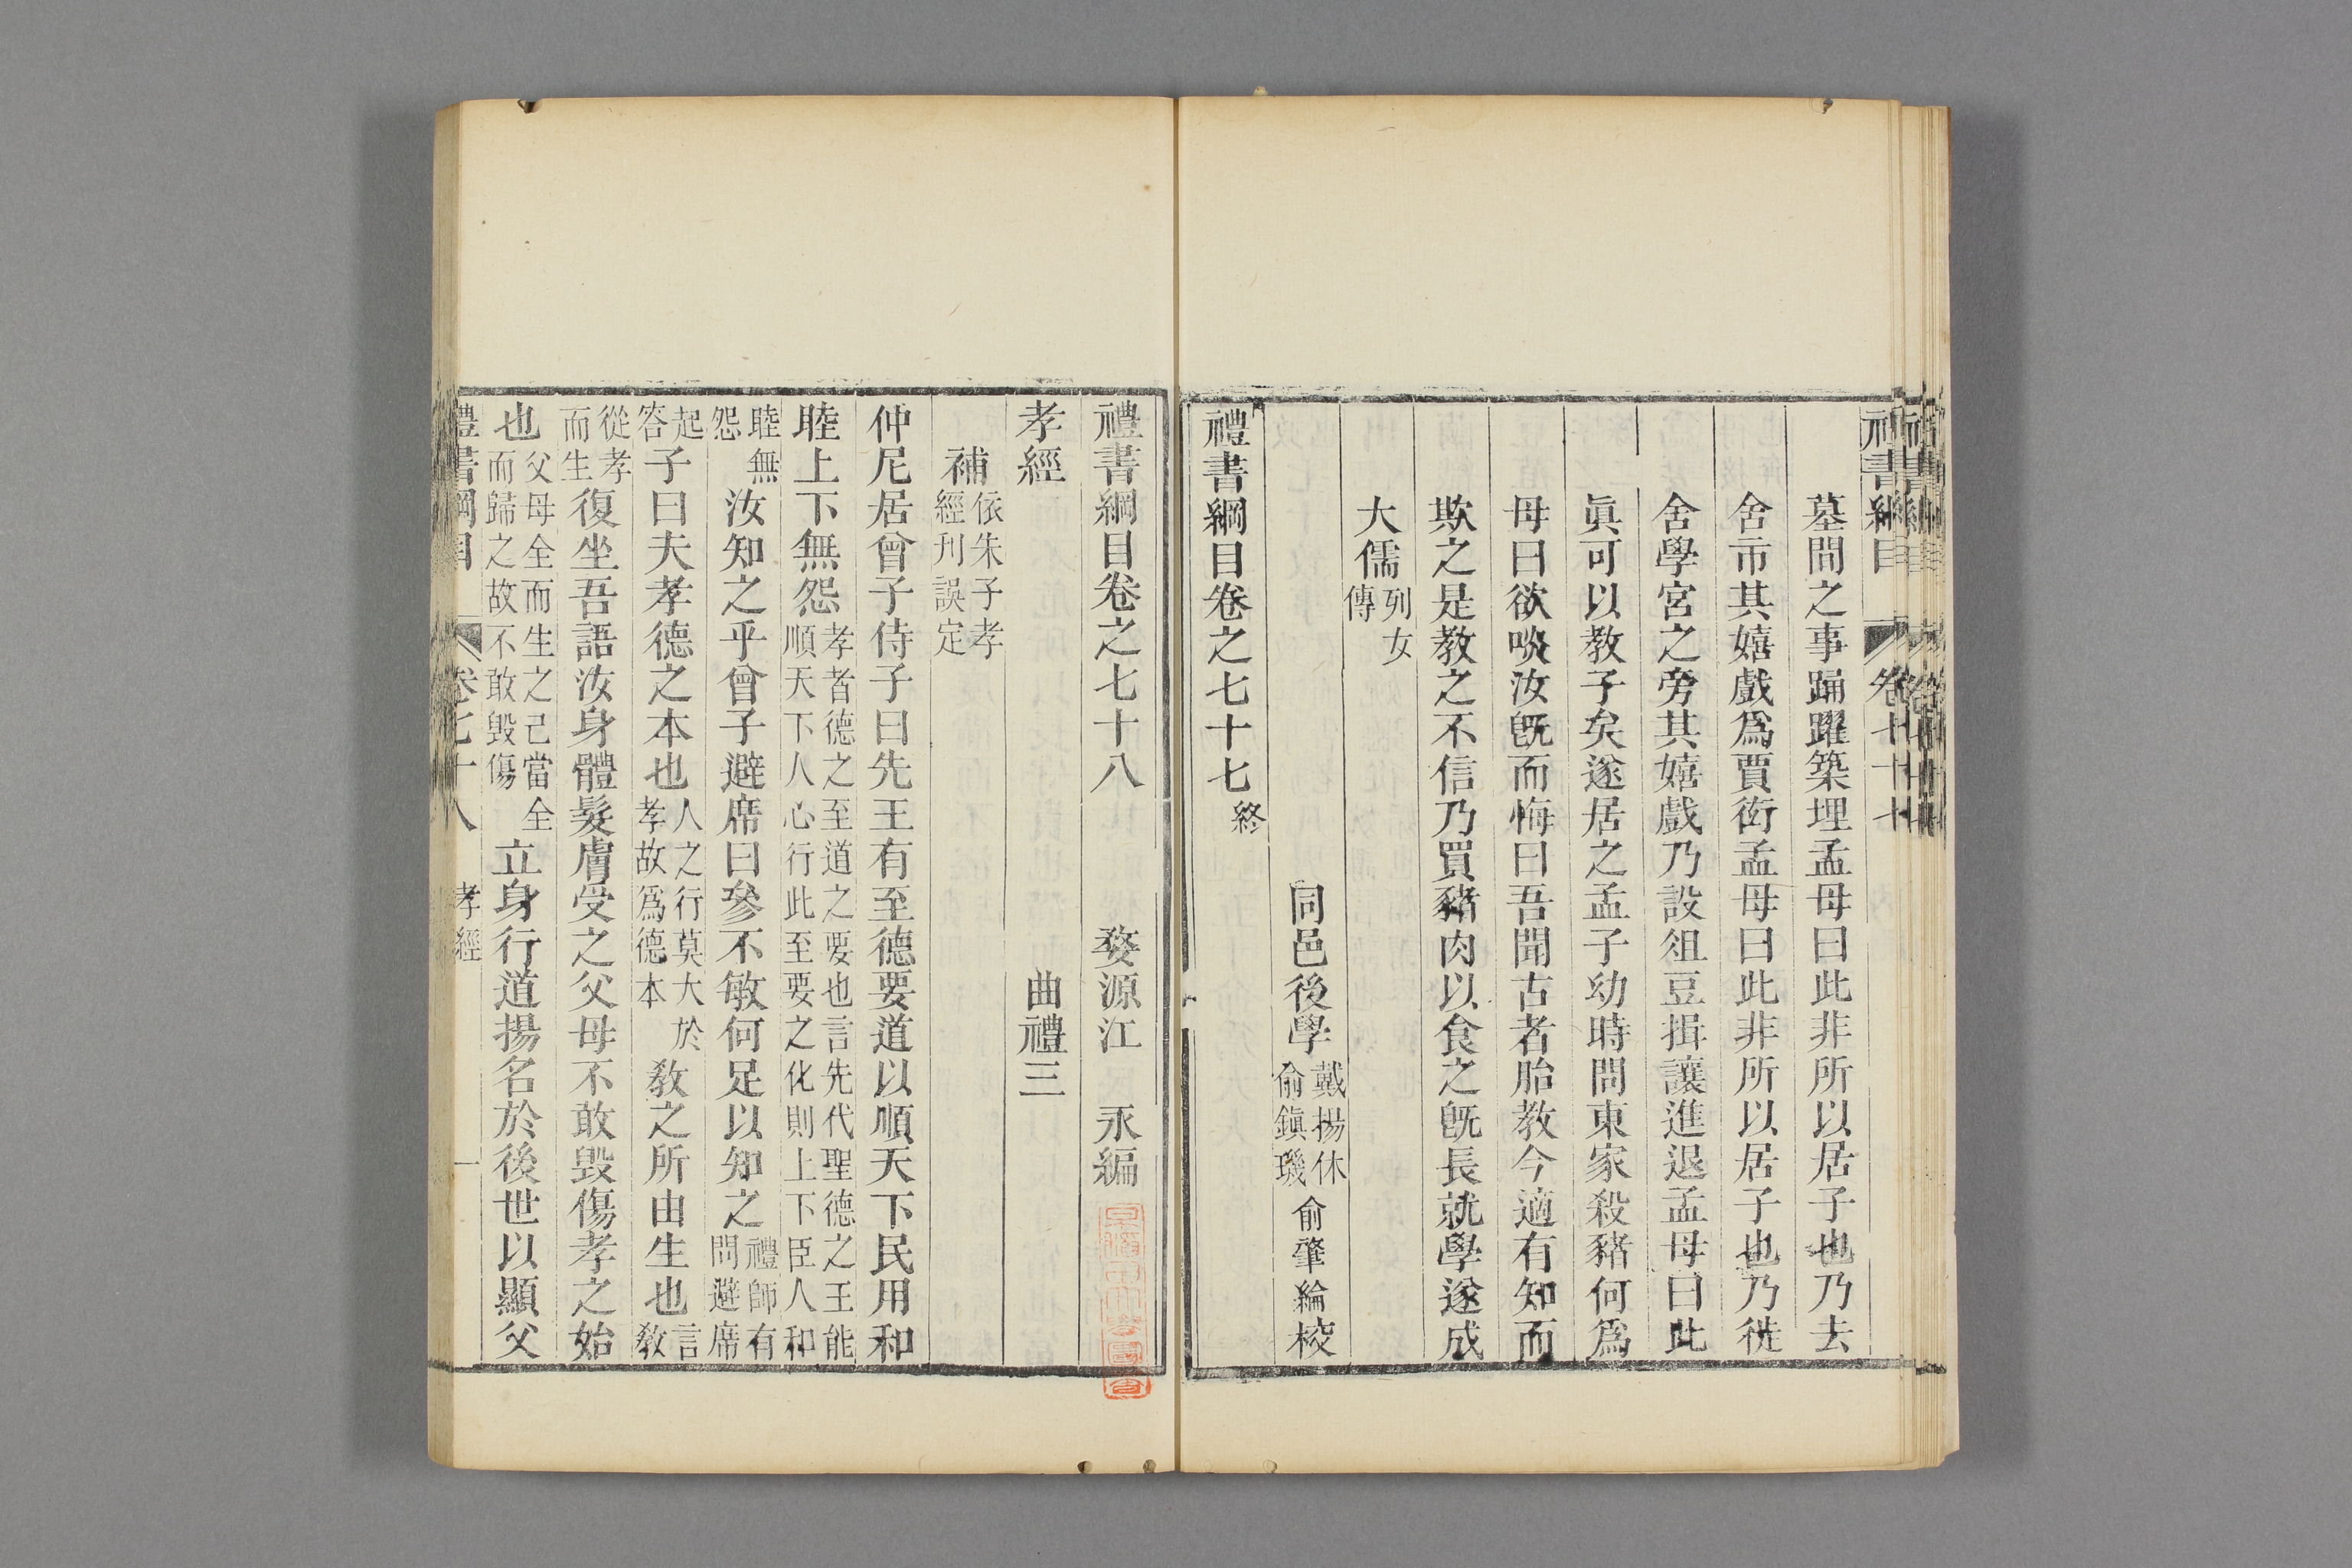 墓間之事踊躍築埋孟母曰此非所以居子也乃去
舍市其嬉戲爲賈衒孟母曰此非所以居子也乃徙
舍學宮之旁其嬉戲乃設俎豆揖讓進退孟母曰此
眞可以教子矣遂居之孟子幼時問東家殺豬何爲
母曰欲啖汝旣而悔曰吾聞古者胎教今適有知而
欺之是教之不信乃買豬肉以食之旣長就學遂成
大儒列女傳
同邑後學戴揚休俞鎭璣俞肇綸校
禮書綱目卷之七十七終
禮書綱目卷之七十八 婺源江 永編
孝經 曲禮三
補依朱子孝經刊誤定
仲尼居曾子侍子曰先王有至德要道以順天下民用和
睦上下無怨孝者德之至道之要也言先代聖德之王能順天下人心行此至要之化則上下臣人和
睦無怨汝知之乎曾子避席曰參不敏何足以知之禮師有問避席
起答子曰夫孝德之本也人之行莫大於孝故爲德本教之所由生也言教
從孝而生復坐吾語汝身體髮膚受之父母不敢毀傷孝之始
也父母全而生之己當全而歸之故不敢毀傷立身行道揚名於後世以顯父
禮書綱目 卷七十八 孝經 一